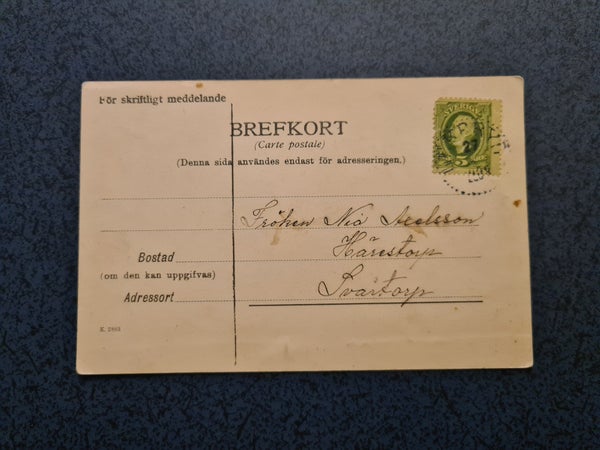 För skriftligt meddelande
SVERIGE
BREFKORT
(Carte postale)
(Denna sida användes endast för adresseringen.)
5
27
Fröken Nia Axelsson
Bostad
Hårestorp
(om den kan uppgifvas)
Adressort
Svartorp
K. 2883